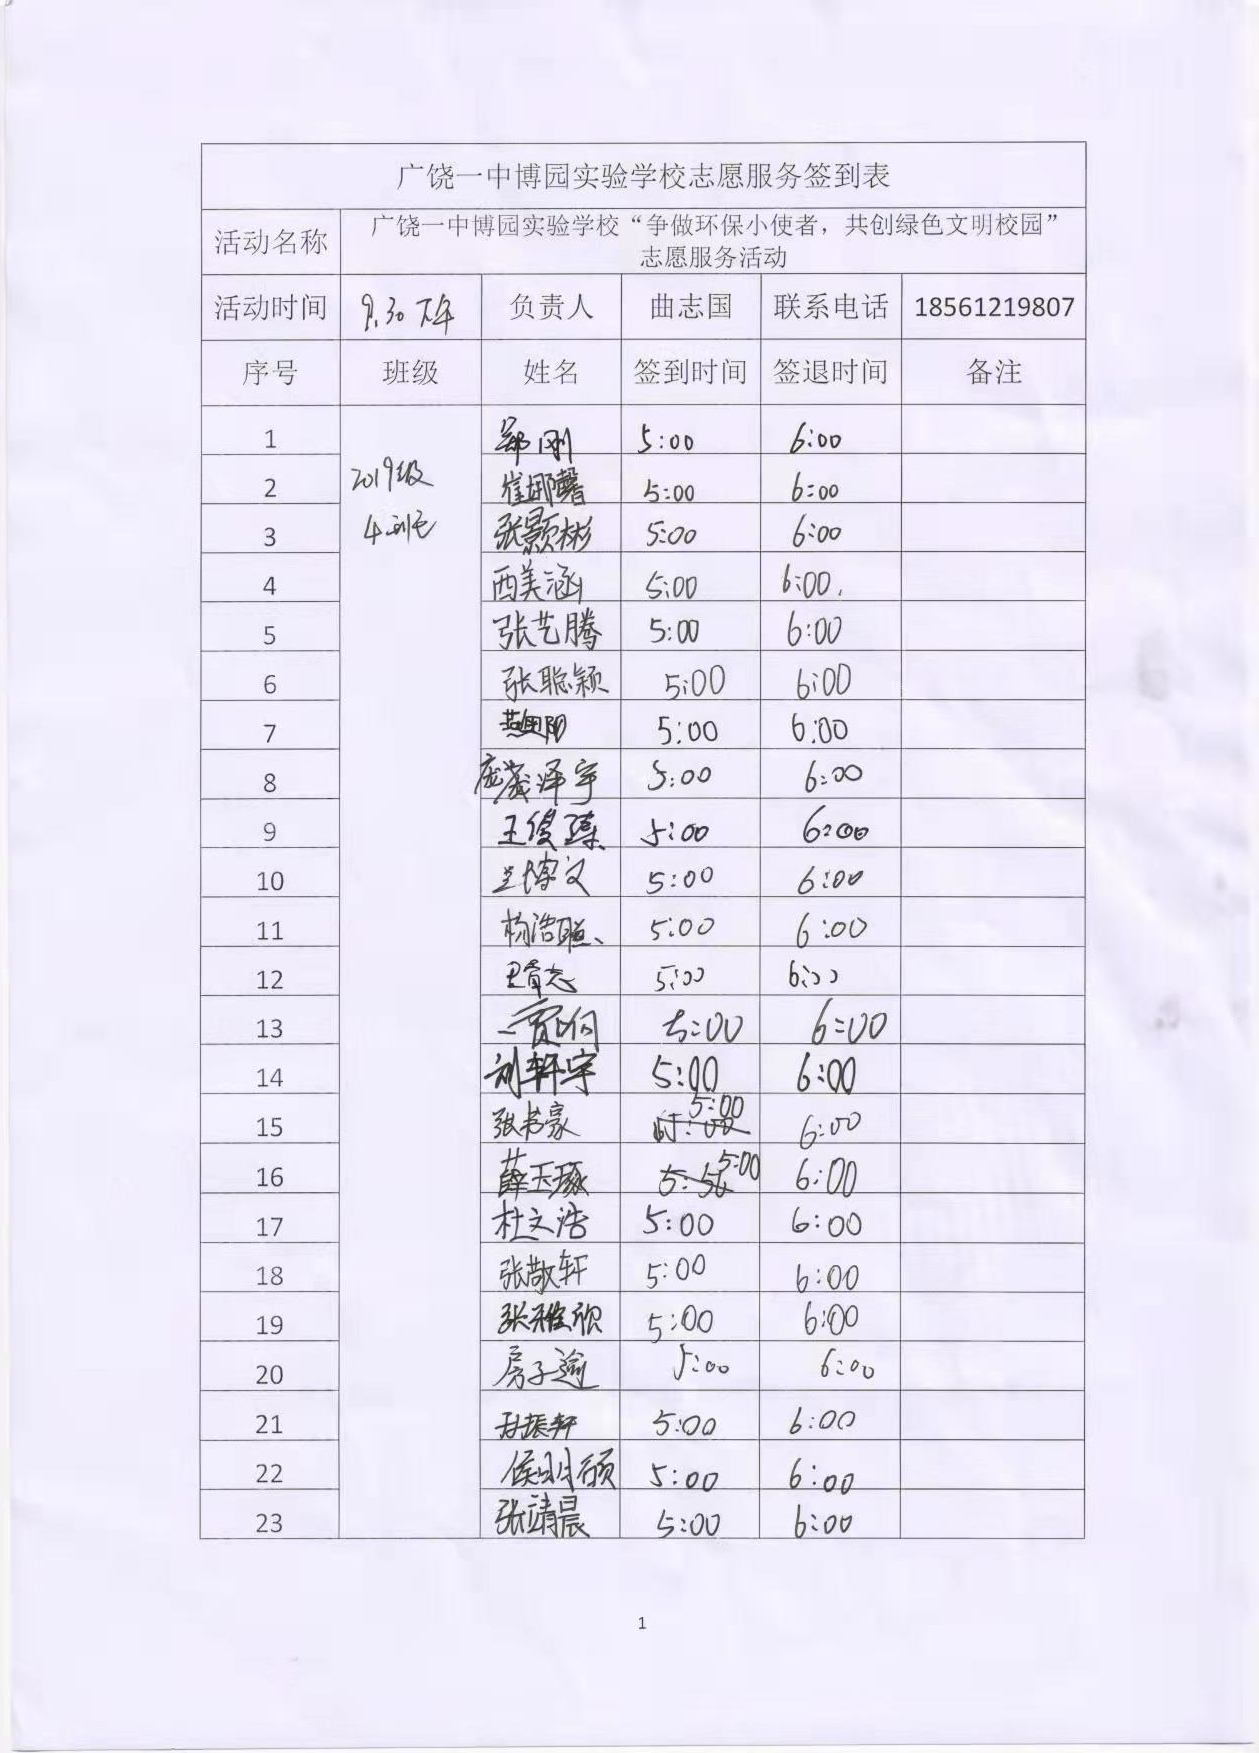 广饶一中博园实验学校志愿服务签到表
活动名称 广饶一中博园实验学校“争做环保小使者，共创绿色文明校园”
志愿服务活动
活动时间 9.30 下午 负责人 曲志国 联系电话 18561219807
序号 班级 姓名 签到时间 签退时间 备注
2019级
4班
1 郑刚 5:00 6:00
2 崔娜馨 5:00 6:00
3 张颢彬 5:00 6:00
4 西美涵 5:00 6:00
5 张艺腾 5:00 6:00
6 张聪颖 5:00 6:00
7 5:00 6:00
8 泽宇 5:00 6:00
9 王俊臻 5:00 6:00
10 兰博文 5:00 6:00
11 杨浩 5:00 6:00
12 5:00 6:00
13 贾 5:00 6:00
14 刘轩宇 5:00 6:00
15 张书豪 5:00 6:00
16 薛玉琢 5:00 6:00
17 杜文浩 5:00 6:00
18 张敬轩 5:00 6:00
19 张雅欣 5:00 6:00
20 房子逾 5:00 6:00
21 振轩 5:00 6:00
22 侯明硕 5:00 6:00
23 张靖晨 5:00 6:00
1